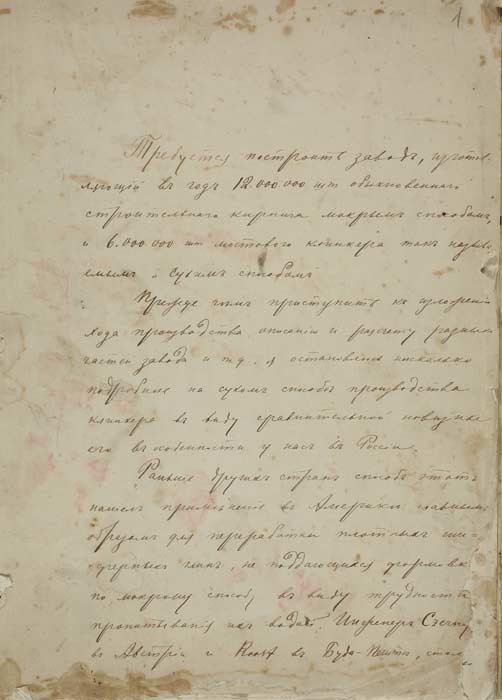 1
Требуется построить заводъ, изготв-
ляющій въ годъ 12.000.000 шт обыкновеннаго
строительнаго кирпича мокрымъ способомъ,
и 6.000.000 шт мостового клинкера такъ называ
емымъ „ сухимъ способомъ
Прежде чѣмъ приступить къ изложенію
хода производства, описанію и расчету разныхъ
частей завода и т.д., я остановлюсь нѣсколько
подробнѣе на сухомъ способѣ производства
клинкера въ виду сравнительной новизны
его въ особенности у насъ въ Россіи.
Раньше другихъ странъ способъ этотъ
нашелъ примѣненіе въ Америкѣ главнымъ
образомъ для переработки плотныхъ ши-
ферныхъ глинъ, не поддающихся формовкѣ
по мокрому способу въ виду трудности
пропитыванія ихъ водою. Инженеръ
въ Австріи и Roost въ Буда-Пештѣ,